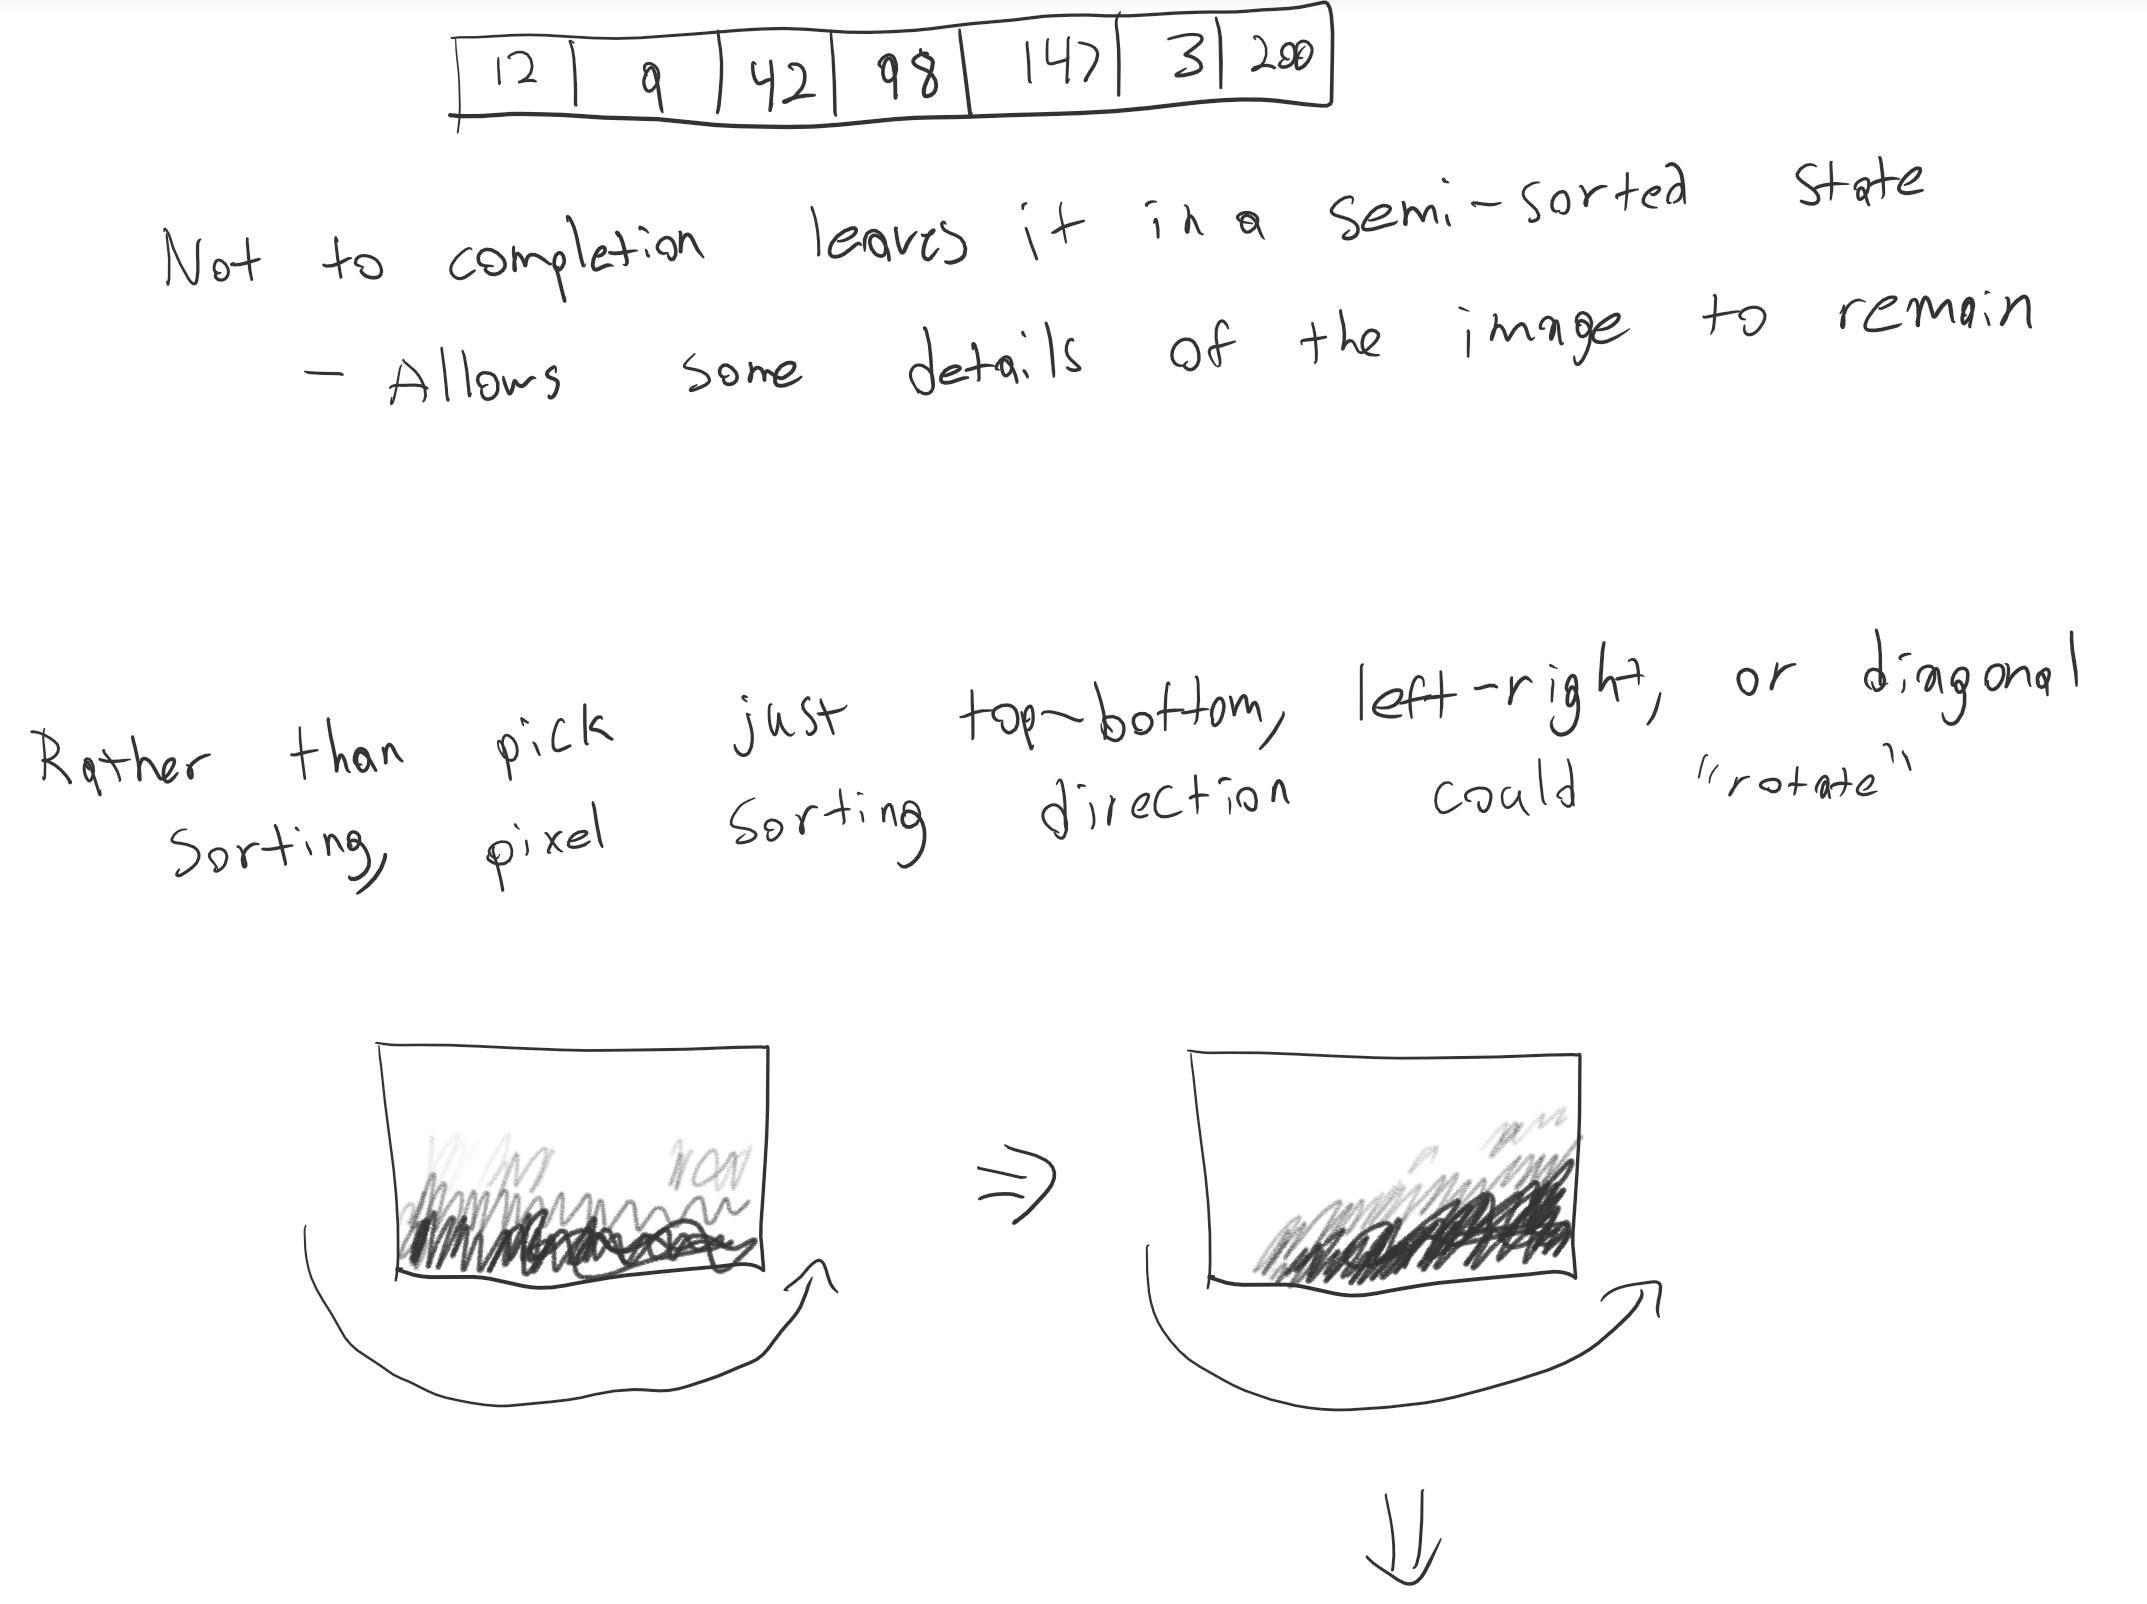 12 9 42 98 147 3 200
Not to completion leaves it in a semi-sorted state
- Allows some details of the image to remain
Rather than pick just top-bottom, left-right, or diagonal
sorting, pixel sorting direction could "rotate"